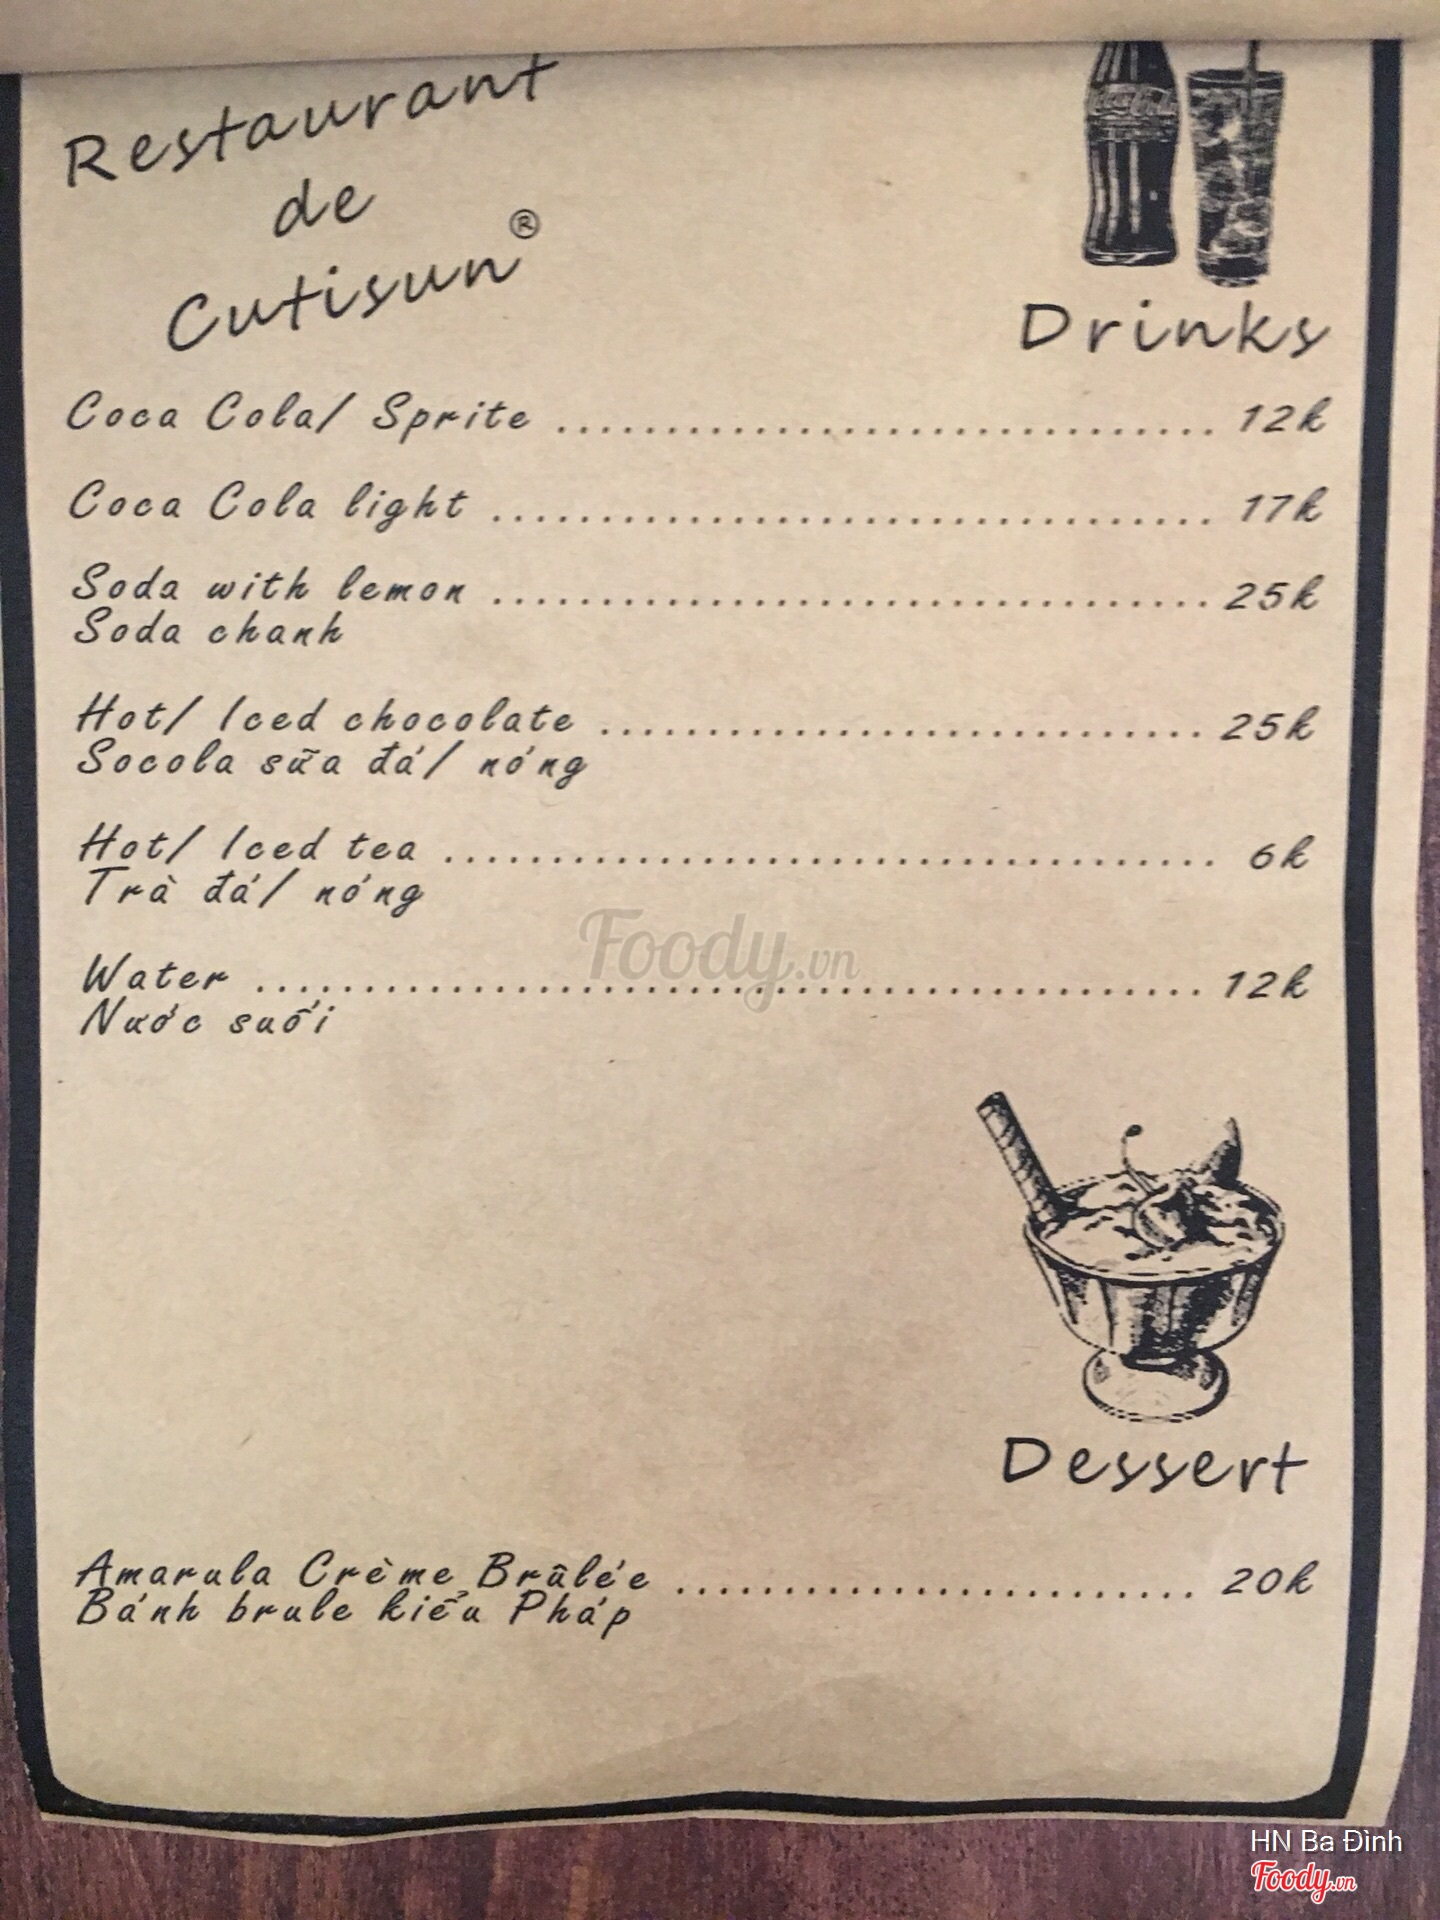 Restaurant
de
Cutisun®
Coca Cola
Drinks
Coca Cola/ Sprite ........................................ 12k
Coca Cola light ........................................ 17k
Soda with lemon ........................................ 25k
Soda chanh
Hot/ Iced chocolate .................................. 25k
Socola sữa đá/ nóng
Hot/ Iced tea ........................................... 6k
Trà đá/ nóng
Water ..................................................... 12k
Nước suối
Foody.vn
Dessert
Amarula Crème Brûlée ............................. 20k
Bánh brule kiểu Pháp
HN Ba Đình
Foody.vn